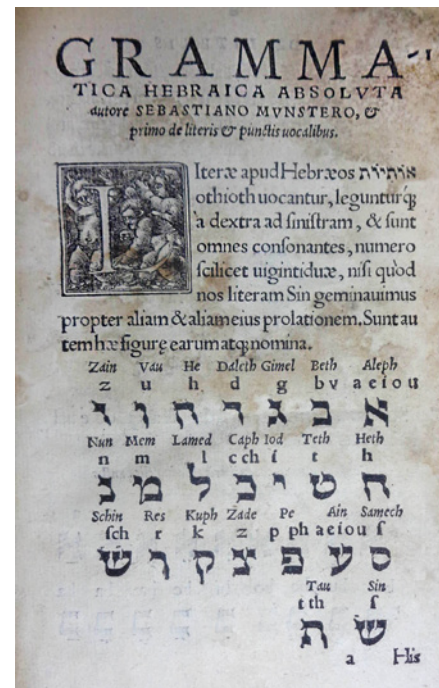 GRAMMA-
TICA HEBRAICA ABSOLVTA
autore SEBASTIANO MVNSTERO, &
primo de literis & punctis uocalibus.
LIteræ apud Hebræos אותיות
othioth uocantur, legunturq́;
a dextra ad sinistram, & sunt
omnes consonantes, numero
scilicet uigintiduæ, nisi quòd
nos literam Sin geminauimus
propter aliam & aliam eius prolationem. Sunt au
tem hæ figuræ earum atq; nomina.
Zain Vau He Daleth Gimel Beth Aleph
z u h d g bv a e i o u
א ב ג ד ה ו ז
Nun Mem Lamed Caph Iod Teth Heth
n m l c ch i t h
ח ט י כ ל מ נ
Schin Res Kuph Zade Pe Ain Samech
ſch r k z p ph a e i o u ſ
ס ע פ צ ק ר ש
Tau Sin
t th ſ
ש ת
a His